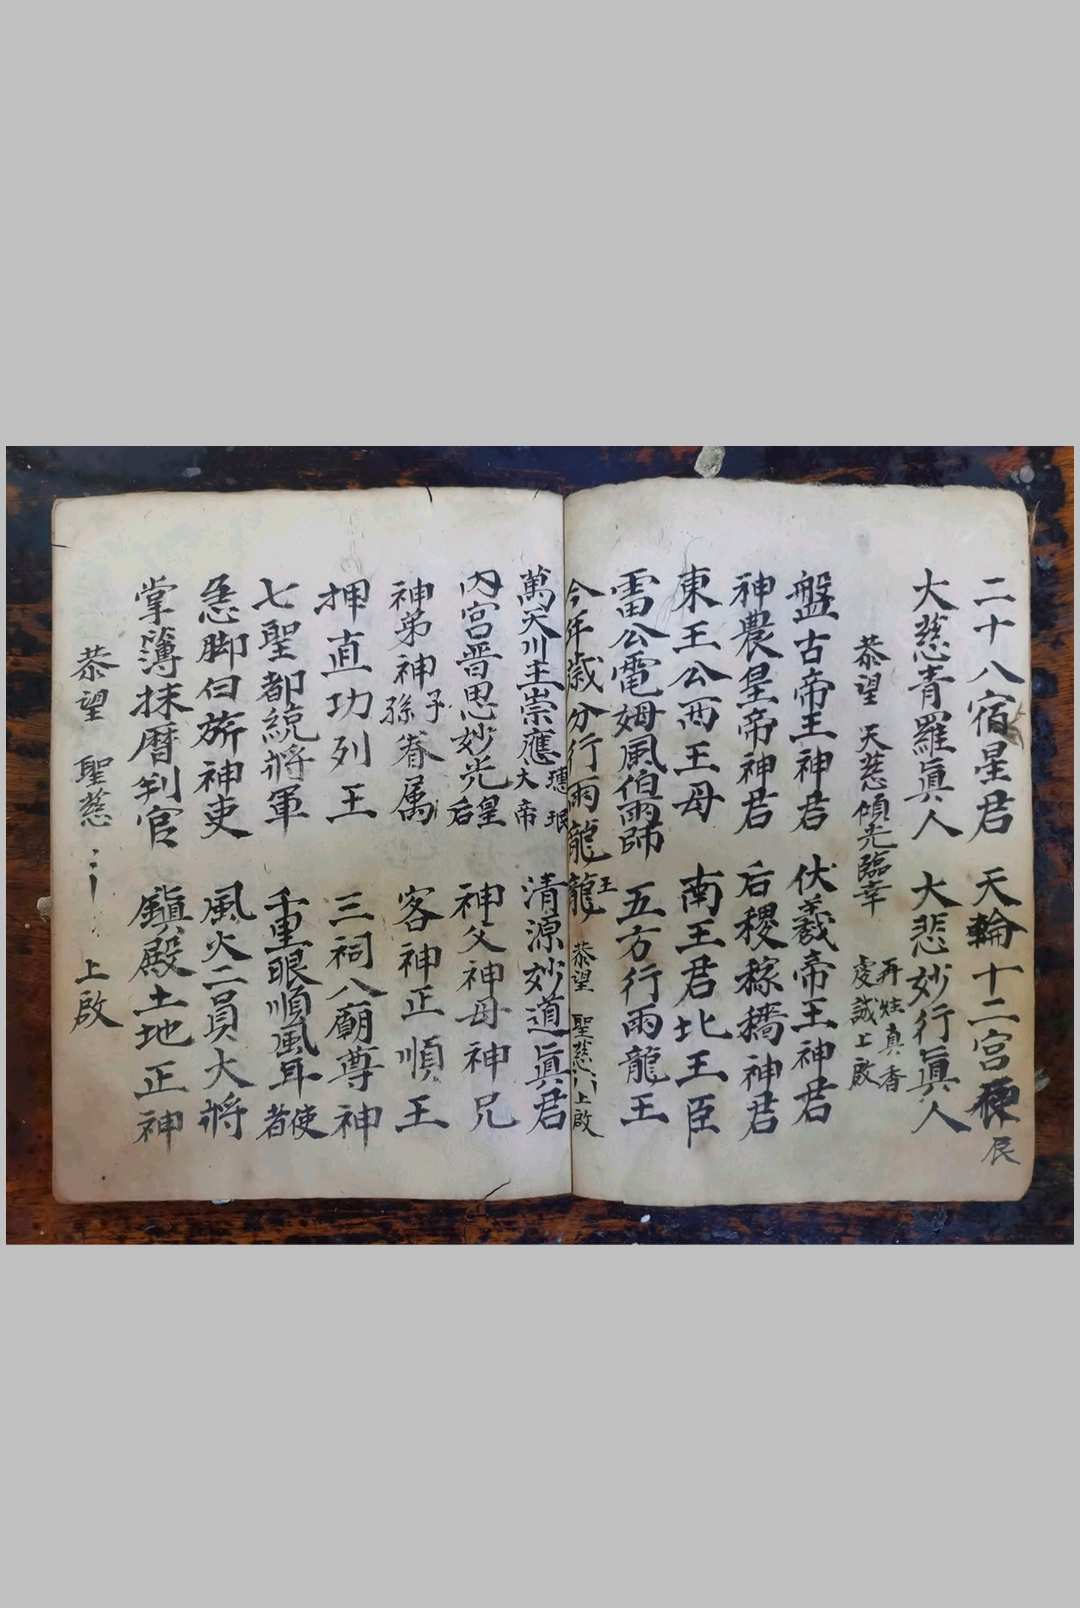 二十八宿星君　天輪十二宮　辰
大慈青羅眞人　大悲妙行眞人
恭望　天慈傾光臨幸　再炷真香
虔誠上啟
盤古帝王神君　伏羲帝王神君
神農皇帝神君　后稷稼穡神君
東王公西王母　南王君北王臣
雷公電姆風伯雨師　五方行雨龍王
今年歲分行雨龍龍王　恭望　聖慈　上啟
萬天川主崇應大帝　清源妙道眞君
內宮晋思妙光皇后　神父神母神兄
神弟神子孫眷属　客神正順王
押直功列王　三祠八廟尊神
七聖都統將軍　千里眼順風耳使者
急脚白旂神吏　風火二員大將
掌簿抹曆判官　鎮殿土地正神
恭望　聖慈　上啟